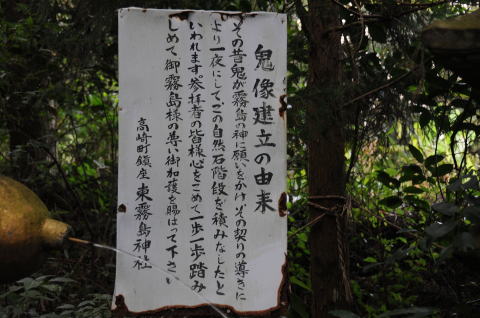 鬼像建立の由来
その昔鬼が霧島の神に願いをかけ、その契りの導きに
より一夜にして、この自然石階段を積みなしたと
いわれます参拝者の皆様心をこめて一歩一歩踏み
しめて御霧島様の尊い御加護を賜はって下さい
高崎町鎮座 東霧島神社